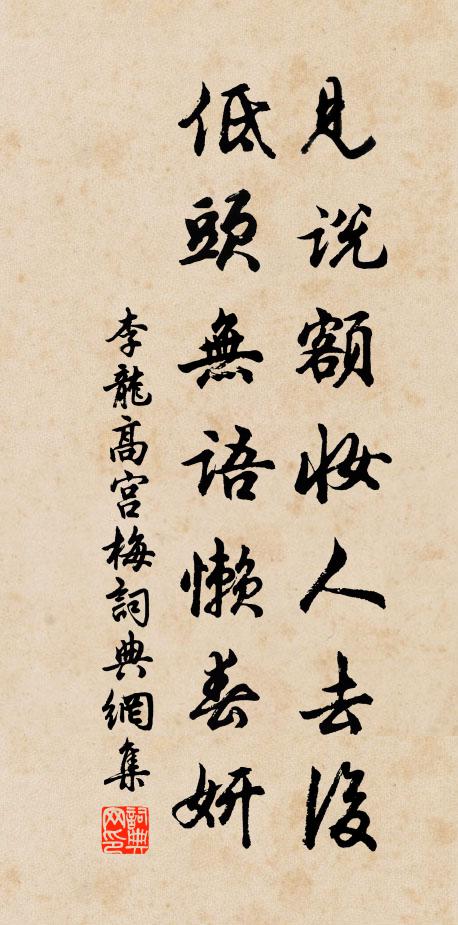 見說額妝人去後
低頭無語懶春妍
李龍高宮梅詞典網集
詞典網印